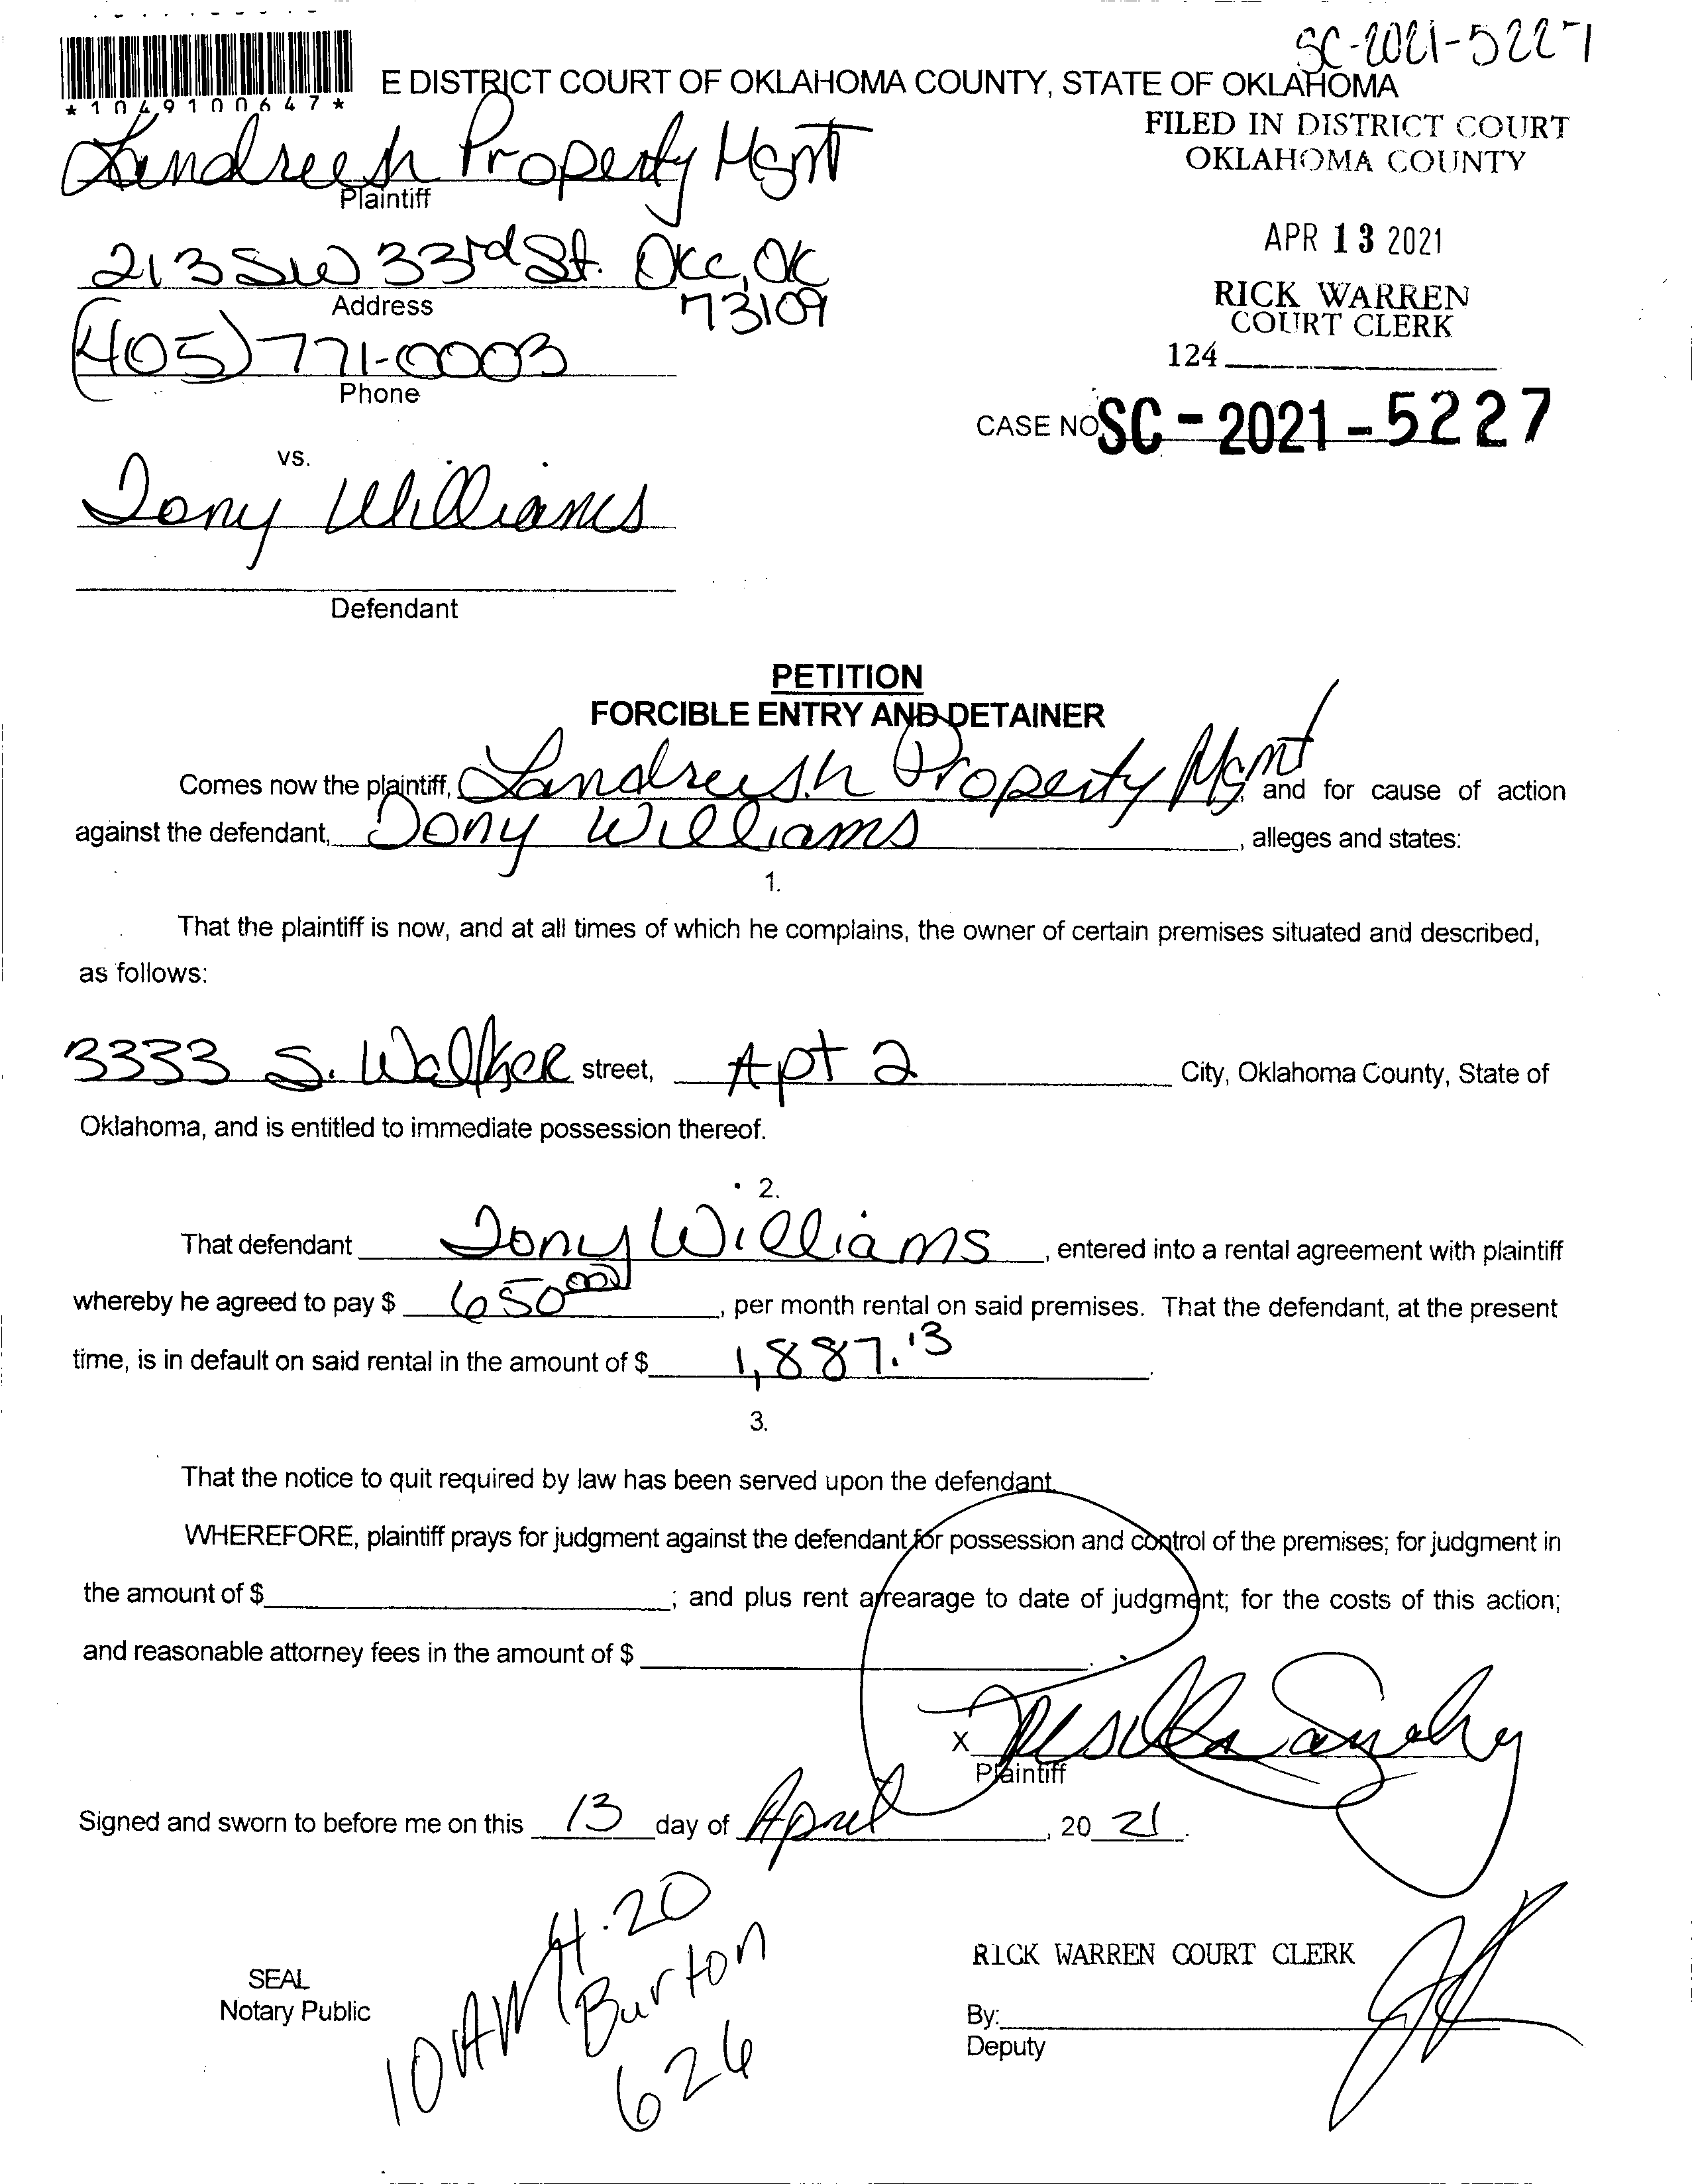 SC-2021-5227
*1049100647*
E DISTRICT COURT OF OKLAHOMA COUNTY, STATE OF OKLAHOMA
FILED IN DISTRICT COURT
OKLAHOMA COUNTY
Landreesh Property Mgmt
Plaintiff
APR 13 2021
213 SW 33rd St. Okc, OK
73109
Address
RICK WARREN
COURT CLERK
(405) 771-0003
Phone
124
CASE NO. SC-2021-5227
vs.
Tony Williams
Defendant
PETITION
FORCIBLE ENTRY AND DETAINER
Comes now the plaintiff, Landreesh Property Mgmt, and for cause of action
against the defendant, Tony Williams, alleges and states:
1.
That the plaintiff is now, and at all times of which he complains, the owner of certain premises situated and described,
as follows:
3333 S. Walker street, Apt 2 City, Oklahoma County, State of
Oklahoma, and is entitled to immediate possession thereof.
2.
That defendant Tony Williams, entered into a rental agreement with plaintiff
whereby he agreed to pay $ 650.00, per month rental on said premises. That the defendant, at the present
time, is in default on said rental in the amount of $ 1,887.13.
3.
That the notice to quit required by law has been served upon the defendant.
WHEREFORE, plaintiff prays for judgment against the defendant for possession and control of the premises; for judgment in
the amount of $ ; and plus rent arrearage to date of judgment; for the costs of this action;
and reasonable attorney fees in the amount of $ .
X
Plaintiff
Signed and sworn to before me on this 13 day of April, 20 21.
10 AM 4.20
Burton
626
SEAL
Notary Public
RICK WARREN COURT CLERK
By:
Deputy